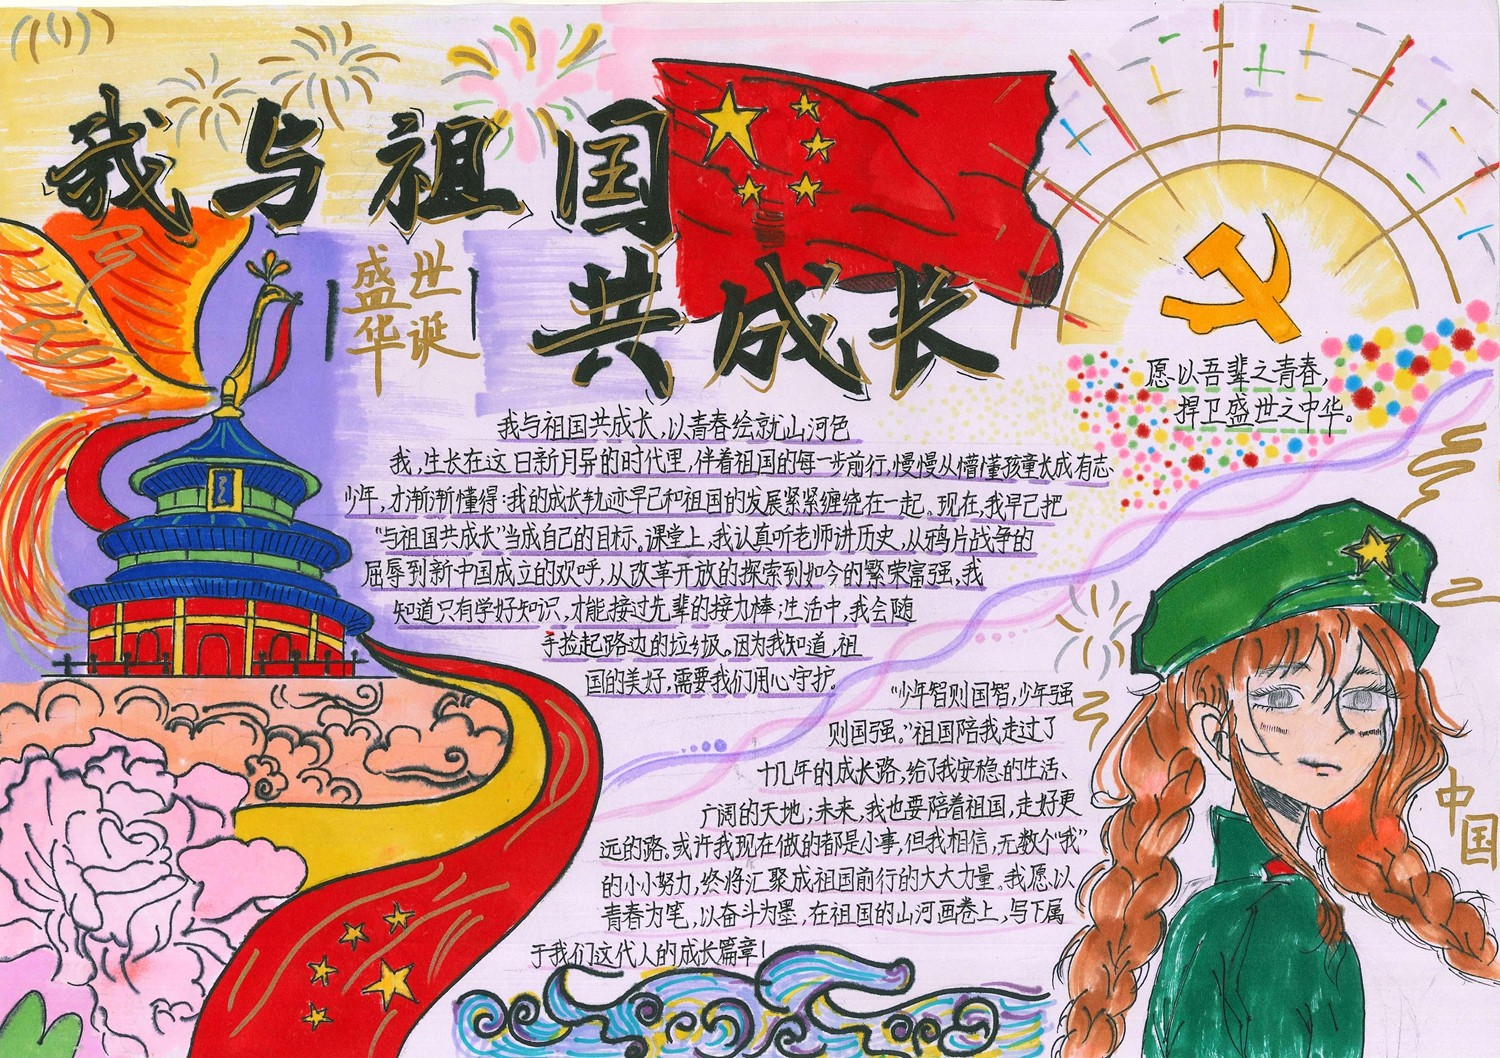 我与祖国
共成长
盛世
华诞
愿以吾辈之青春，
捍卫盛世之中华。
我与祖国共成长，以青春绘就山河色
我，生长在这日新月异的时代里，伴着祖国的每一步前行，慢慢从懵懂孩童长成有志
少年，才渐渐懂得：我的成长轨迹早已和祖国的发展紧紧缠绕在一起。现在，我早已把
“与祖国共成长”当成自己的目标。课堂上，我认真听老师讲历史，从鸦片战争的
屈辱到新中国成立的欢呼，从改革开放的探索到如今的繁荣富强，我
知道只有学好知识，才能接过先辈的接力棒；生活中，我会随
手捡起路边的垃圾。因为我知道，祖
国的美好，需要我们用心守护。
“少年智则国智，少年强
则国强。”祖国陪我走过了
十几年的成长路，给了我安稳的生活、
广阔的天地；未来，我也要陪着祖国，走好更
远的路。或许我现在做的都是小事，但我相信，无数个“我”
的小小努力，终将汇聚成祖国前行的大大力量。我愿以
青春为笔，以奋斗为墨，在祖国的山河画卷上，写下属
于我们这代人的成长篇章！
中
国